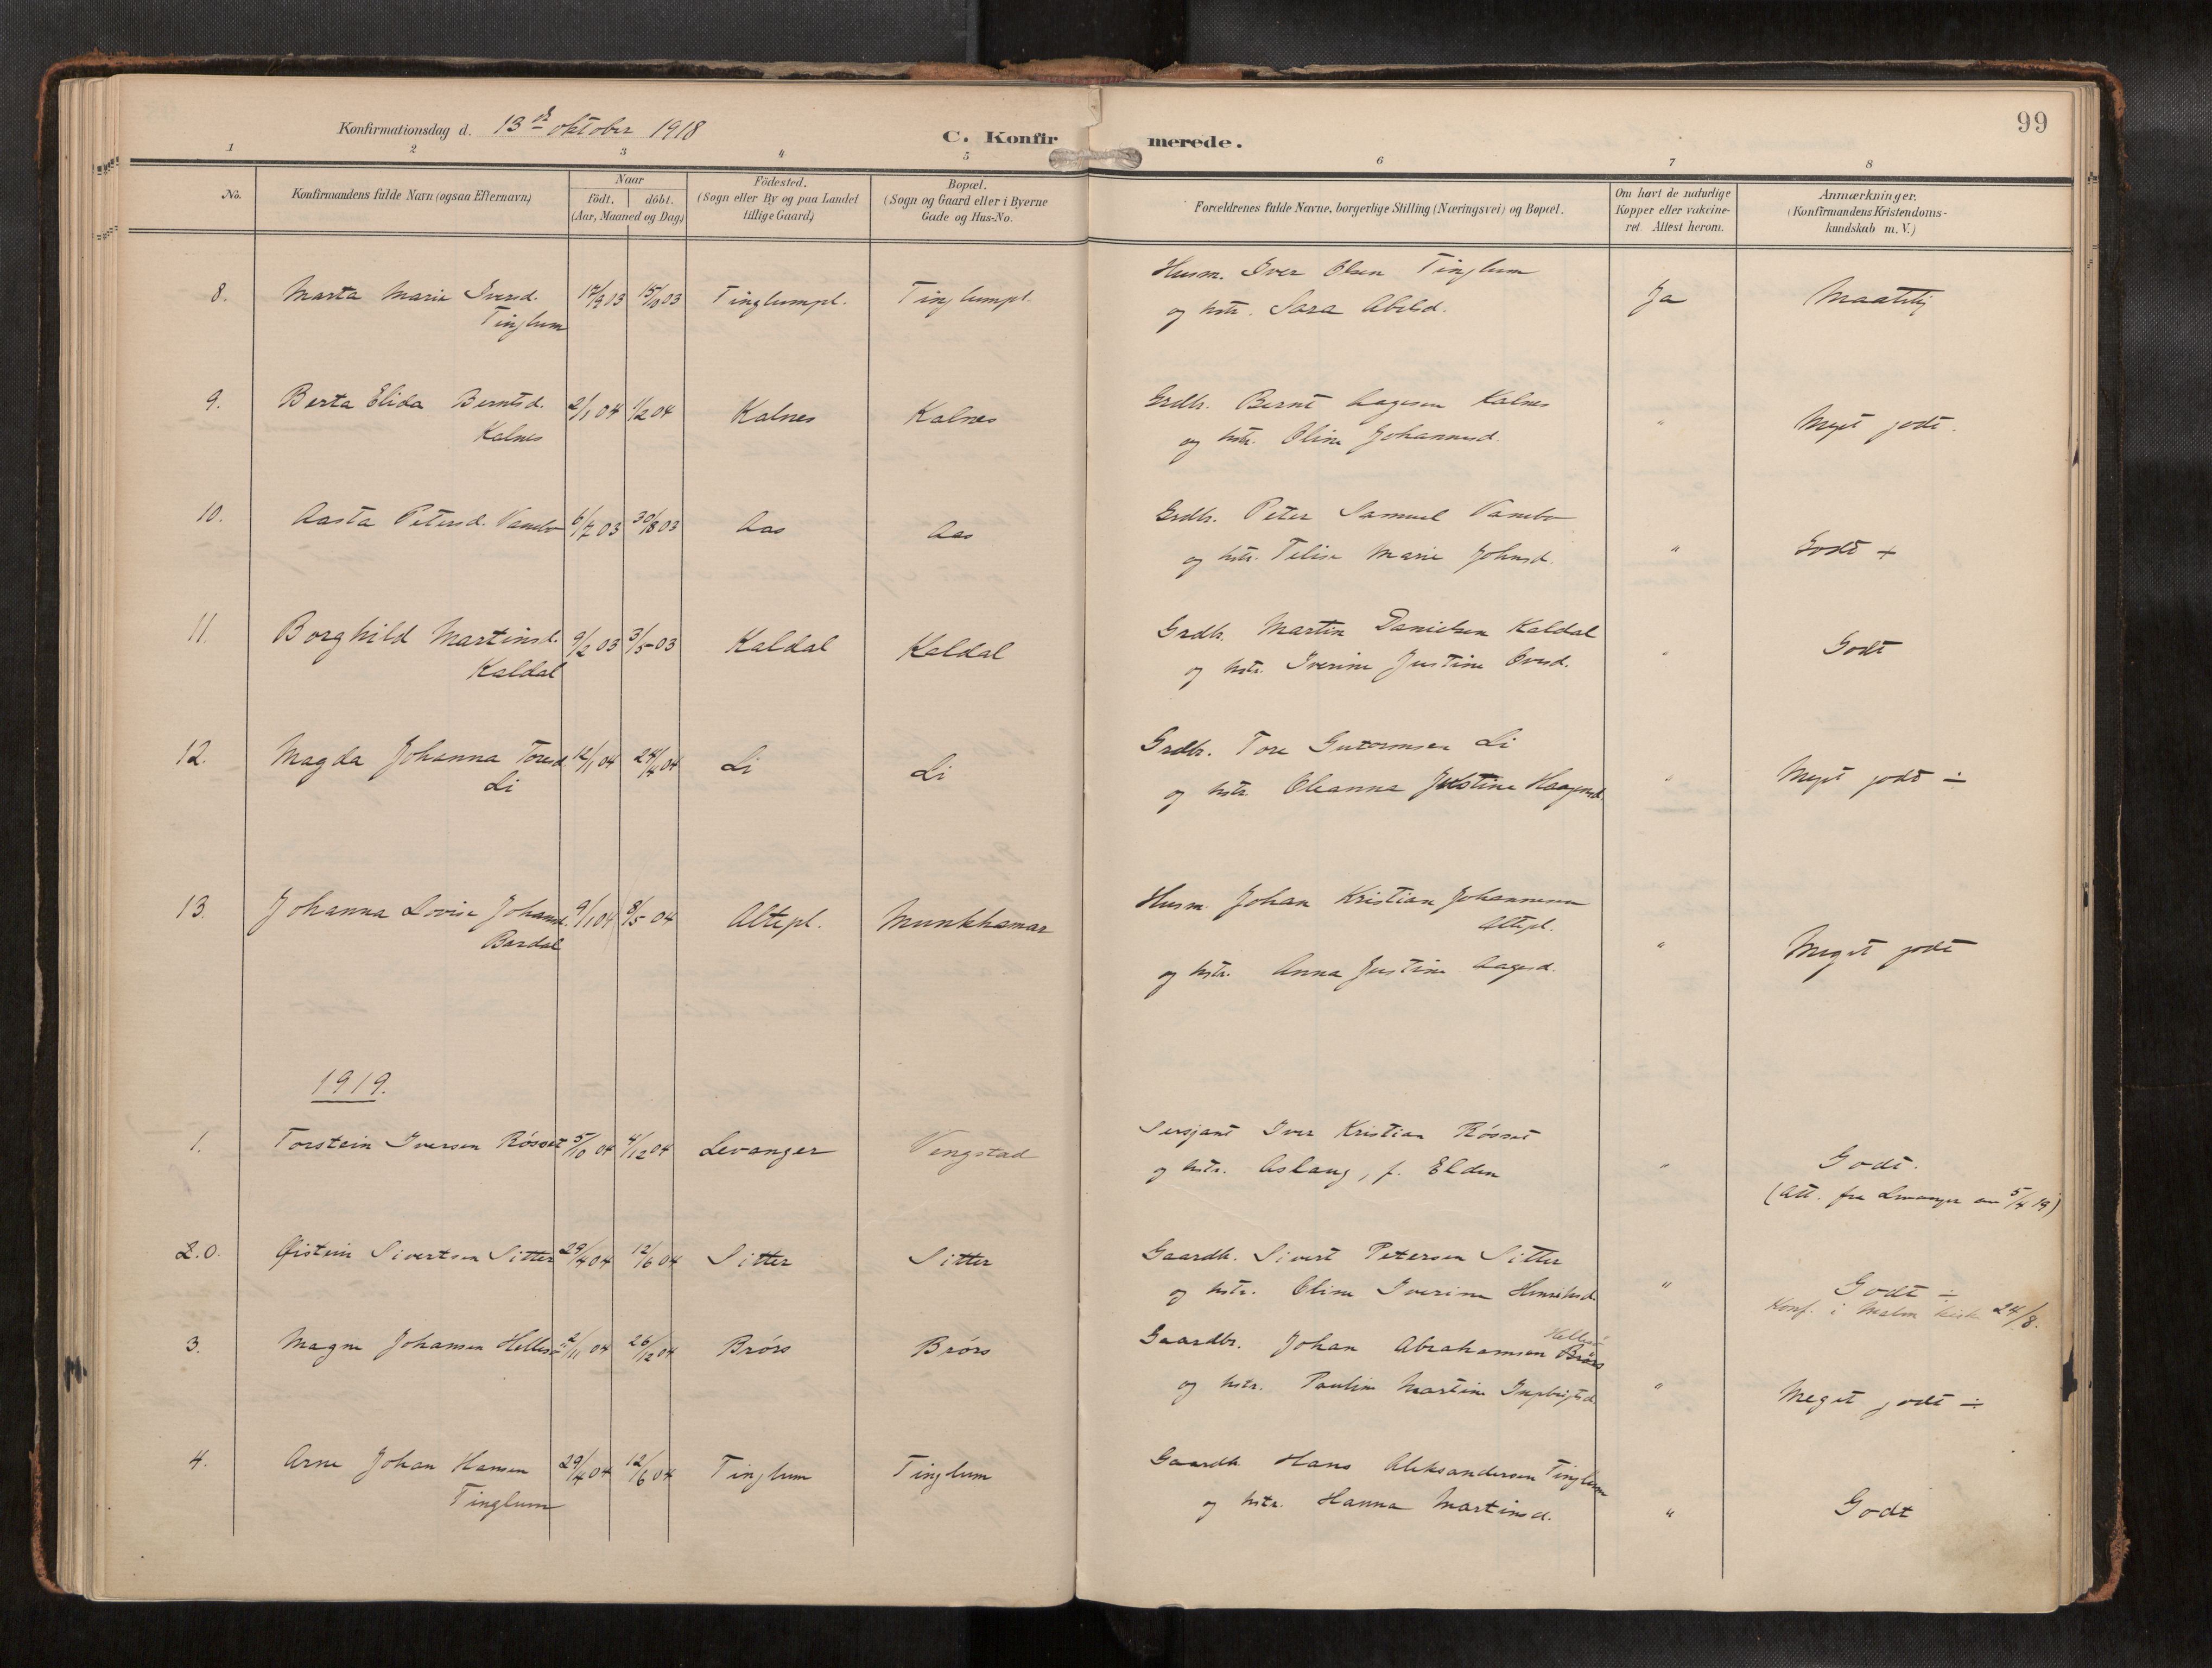 99
Konfirmationsdag d. 13de oktober 1918
C. Konfirmerede.
1 2 3 4 5 6 7 8
No. Konfirmandens fulde Navn (ogsaa Efternavn) Naar født. døbt. (Aar, Maaned og Dag) Födested. (Sogn eller By og paa Landet tillige Gaard) Bopæl. (Sogn og Gaard eller i Byerne Gade og Hus-No. Forældrenes fulde Navne, borgerlige Stilling (Næringsvei) og Bopæl. Om havt de naturlige Kopper eller vakcineret. Attest herom. Anmærkninger. (Konfirmandens Kristendomskundskab m. V.)
8. Marta Marie Iversd. 17/9 03 15/10 03 Tinglumpl. Tinglumpl. Husm. Iver Olsen Tinglum Ja Maatelig
Tinglum og hstr. Sara Abelsd.
9. Berta Elida Berntsd. 2/1 04 1/2 04 Kalnes Kalnes Grdbr. Bernt Aagesen Kalnes " Meget godt.
Kalnes og hstr. Oline Johannesd.
10. Aasta Petersd. Vambo 6/7 03 30/8 03 Aas Aas Grdbr. Peter Samuel Vambo " Godt +
og hstr. Marie Johnsd.
11. Borghild Martinsd. 9/2 03 3/5 03 Kaldal Kaldal Grdbr. Martin Danielsen Kaldal " Godt
Kaldal og hstr. Iverine Justine
12. Magda Johanna Toresd. 12/1 04 24/4 04 Li Li Grdbr. Tore Gutormsen Li " Meget godt ÷
Li og hstr. Oleanna Justine Haagensd.
13. Johanna Lovise Johansd. 9/1 04 8/5 04 Altepl. Munkhamar Husm. Johan Kristian Johannesen " Meget godt
Bardal Altepl.
og hstr. Anna Justine Aagesd.
1919.
1. Torstein Iversen Røsset 5/10 04 4/12 04 Levanger Vengstad Sersjant Iver Kristian Røsset " Godt.
og hstr. Aslaug, f. Elden (Att. fra Levanger av 5/4 19)
2.0. Øistein Sivertsen Sitter 29/4 04 12/6 04 Sitter Sitter Gaardb. Sivert Petersen Sitter " Godt ÷
og hstr. Oline Iverine Henriksd. Konf. i Malm kirke 24/8.
3. Magne Johansen Hellesø 2/11 04 26/12 04 Brørs Brørs Gaardbr. Johan Abrahamsen Brørs Hellesø
og hstr. Pauline Martine Ingebrigtsd. " Meget godt ÷
4. Arne Johan Hansen 29/4 04 12/6 04 Tinglum Tinglum Gaardb. Hans Aleksandersen Tinglum
Tinglum og hstr. Hanna Martinsd. " Godt